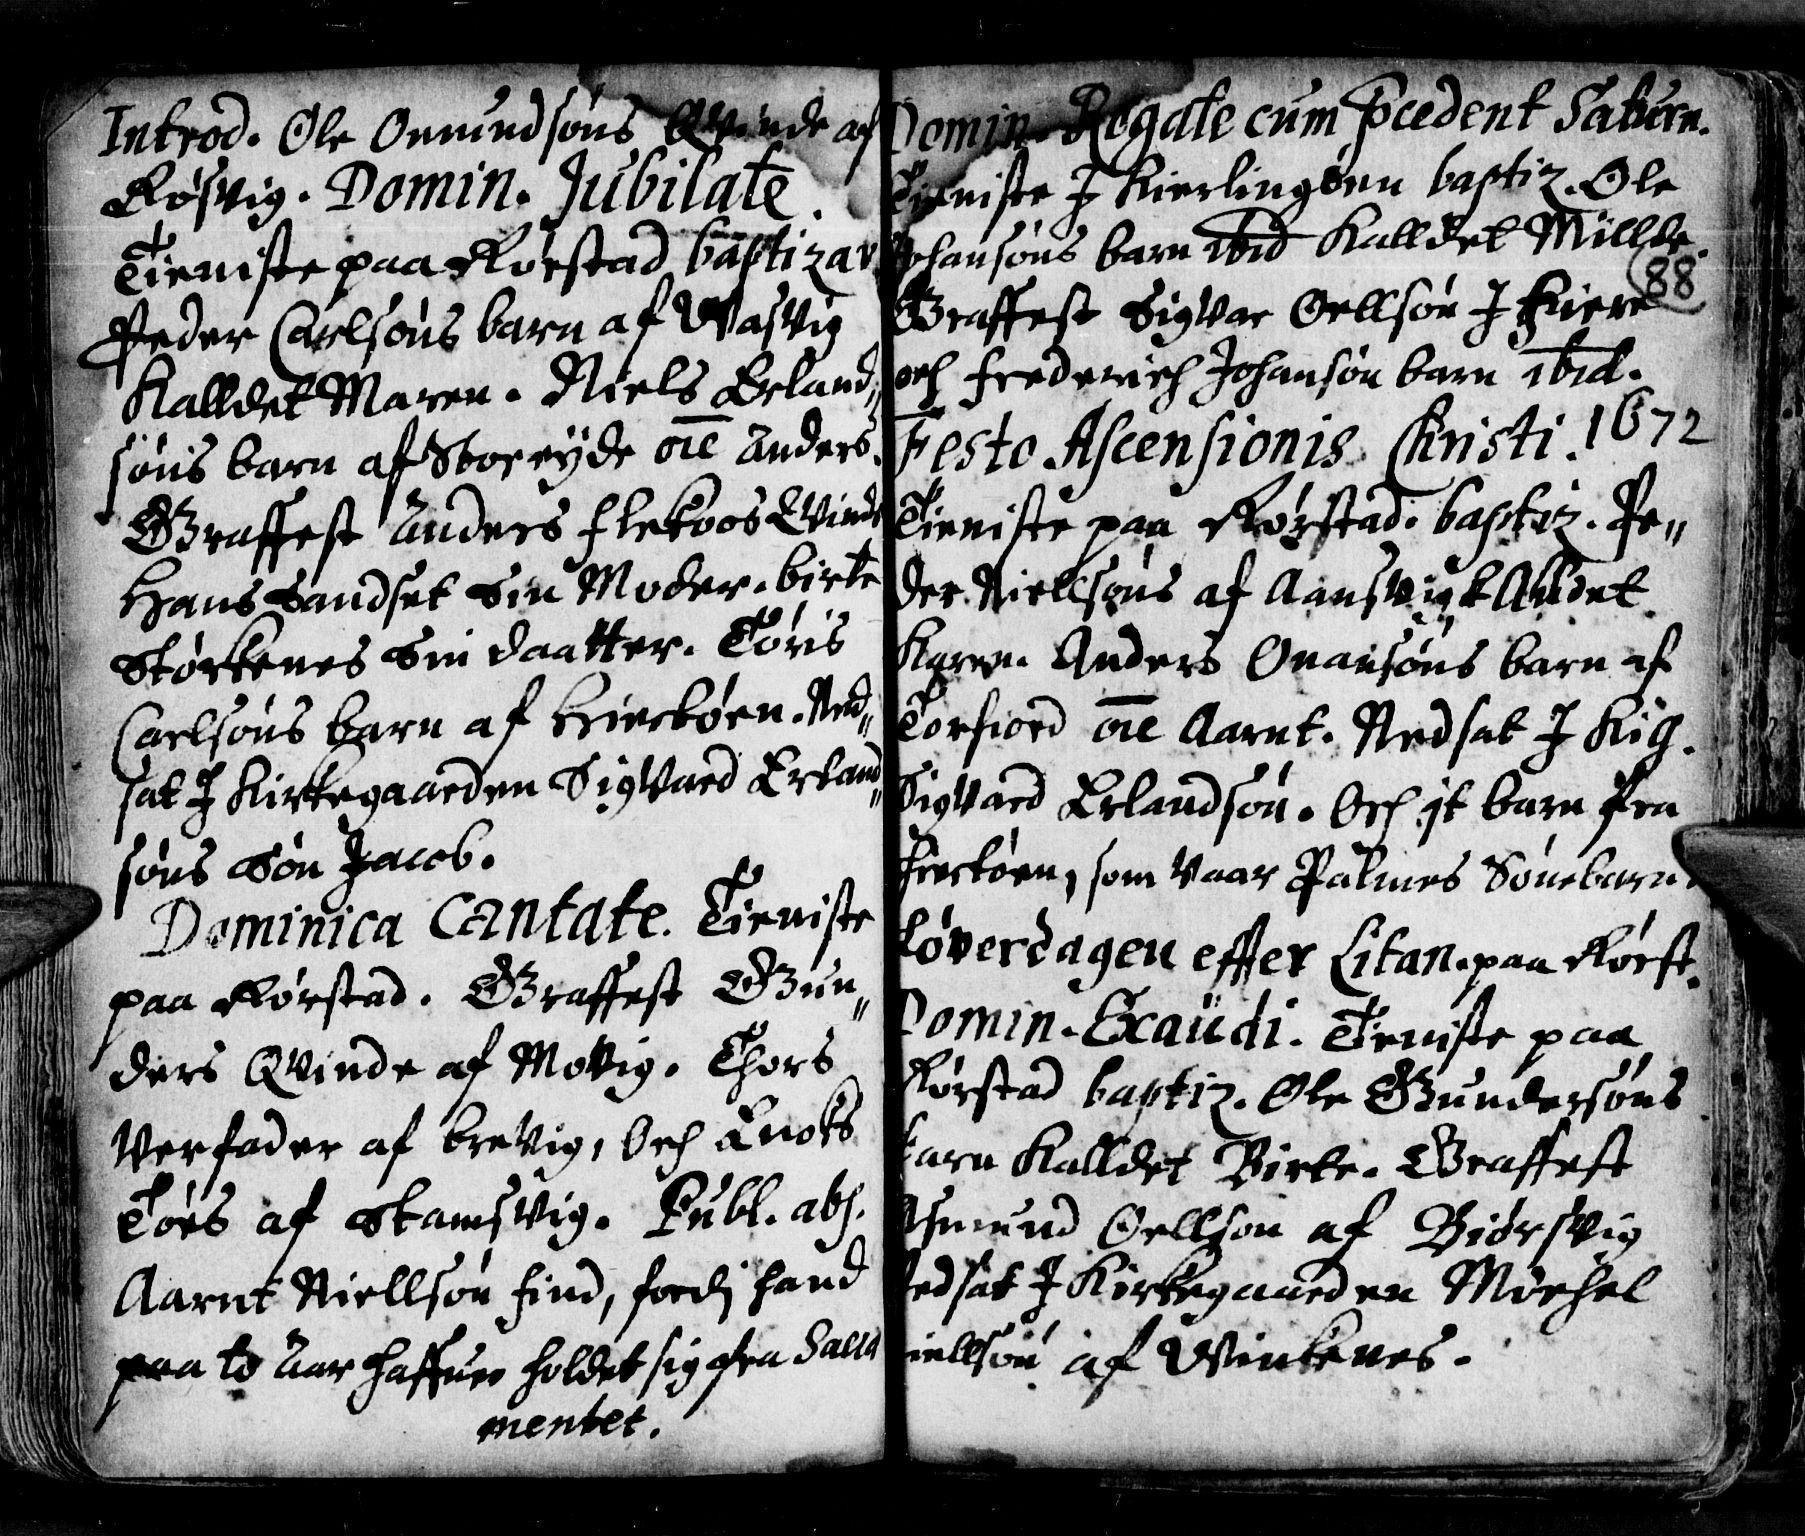 Introd. Ole Onnundsøns Qvinde af
Røsvig. Domin. Jubilate.
Tieniste paa Rørstad baptizav
Peder Carlsøns barn af Wasvig
Kalldet Maren. Niels Erland„
søns barn af Storeyde oīe Anders.
Graffest Anders flekoos Qvinde
Hans Sandset Sin Moder. birte
Størkenes Sin daatter. Tøris
Carlsøns barn af Hierkøen. Ned„
sat J Kirkegaarden Sigvard Erland„
søns Søn Jacob.
Dominica Cantate. Tieniste
paa Rørstad. Graffest Gun„
ders Qvinde af Movig. Thors
Verfader af brevig, Och Knots
Tørs af Skamsvig. Publ. abs.
Aarnt Niellsøn find, fordj hand
paa to Aar haffuer holdet sig fra Sacra
mentet.
Domin. Rogate cum pcedent Saturn.
Tieniste J Kierlingøen baptiz. Ole
Johansøns barn ibid Kalldet Mille.
88
Graffest Sigvar Oellsøn J
och frederich Johansøn barn ibid.
Festo Ascensionis Christi. 1672
Tieniste paa Rørstad. baptiz. Pe„
der Niellsøns af Aansvig kalldet
Karen. Anders Onansøns barn af
Torfiord oīe Aarnt. Nedsat J Kig.
Sigvard Erlandsøn. Och it barn fra
som vaar Palmes Sønebarn.
Løverdagen effter Litan. paa Rørst.
Domin. Exaudi. Tieniste paa
Rørstad baptiz. Ole Gundersøns
barn Kalldet Birte. Graffest
Asmund Oellson af Biørsvig
Nedsat J Kirkegaarden Morhel
Niellsøn af Winkenes.